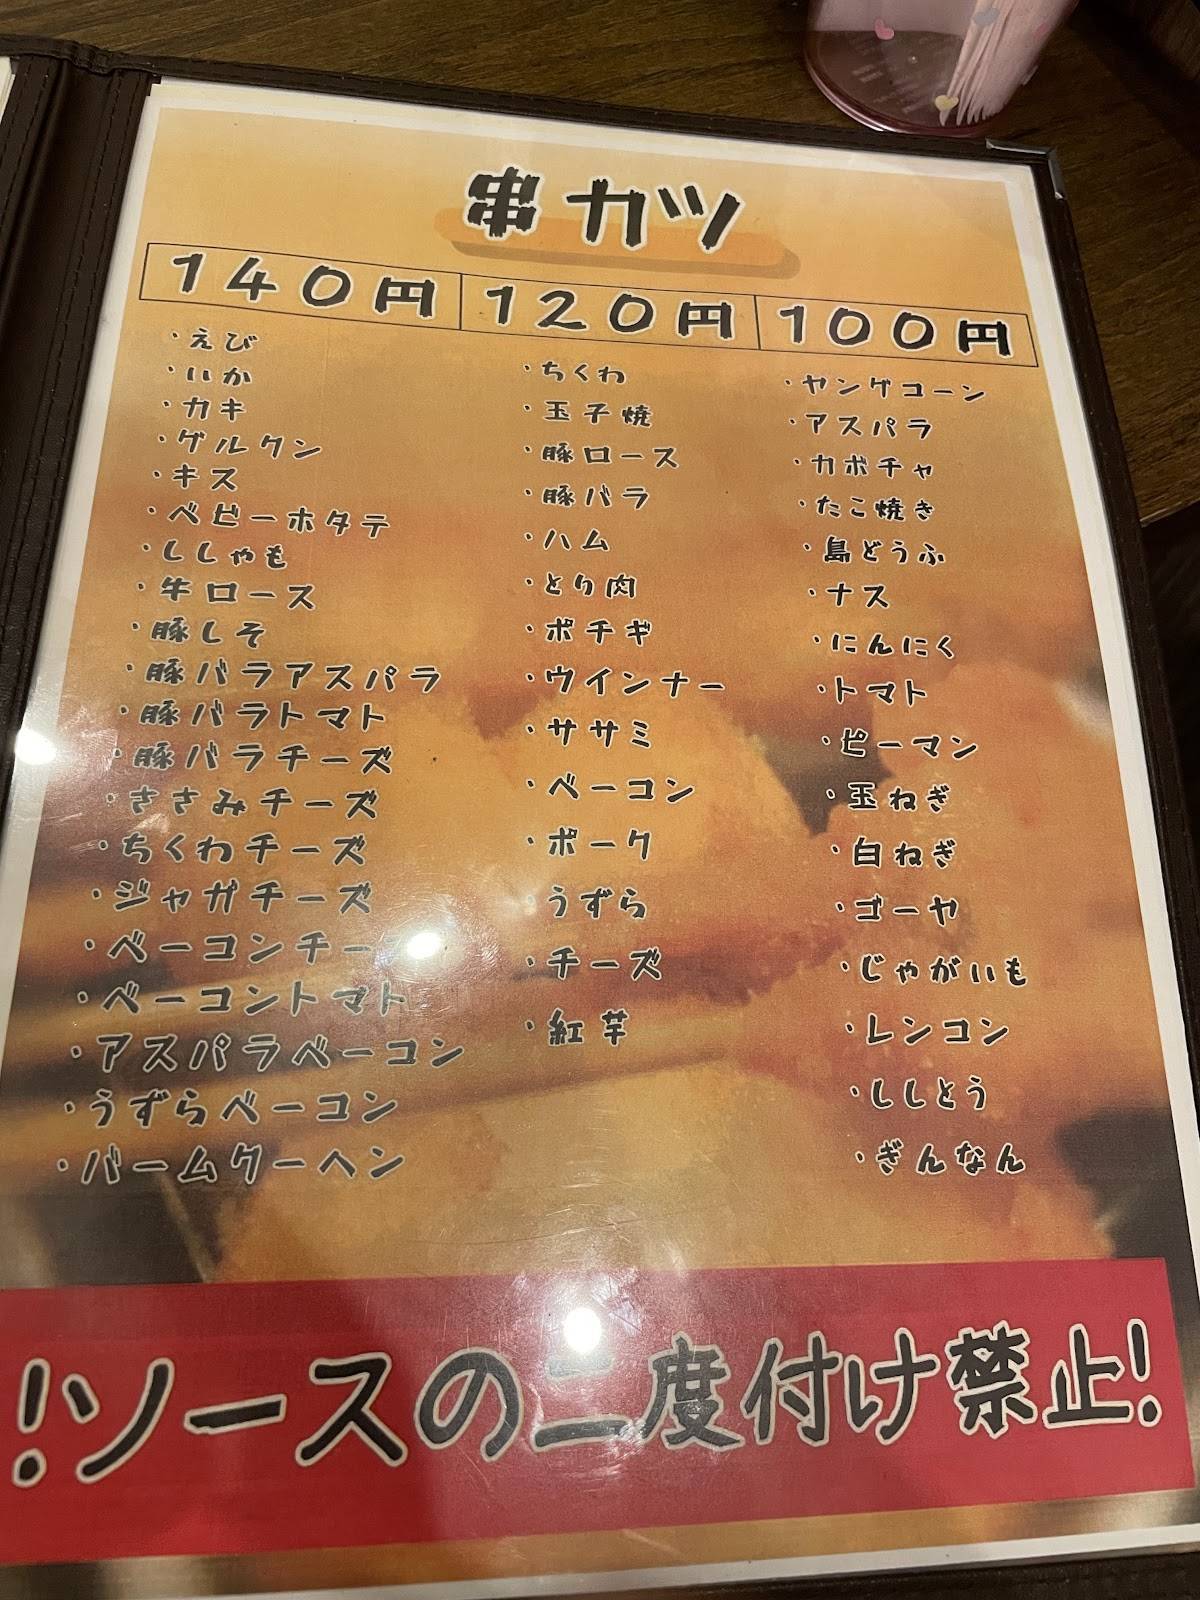 串カツ
140円 120円 100円
・えび
・いか
・カキ
・グルクン
・キス
・ベビーホタテ
・ししゃも
・牛ロース
・豚しそ
・豚バラアスパラ
・豚バラトマト
・豚バラチーズ
・ささみチーズ
・ちくわチーズ
・ジャガチーズ
・ベーコンチーズ
・ベーコントマト
・アスパラベーコン
・うずらベーコン
・バームクーヘン
・ちくわ
・玉子焼
・豚ロース
・豚バラ
・ハム
・とり肉
・ポチギ
・ウインナー
・ササミ
・ベーコン
・ポーク
・うずら
・チーズ
・紅芋
・ヤングコーン
・アスパラ
・カボチャ
・たこ焼き
・島どうふ
・ナス
・にんにく
・トマト
・ピーマン
・玉ねぎ
・白ねぎ
・ゴーヤ
・じゃがいも
・レンコン
・ししとう
・ぎんなん
!ソースの二度付け禁止!